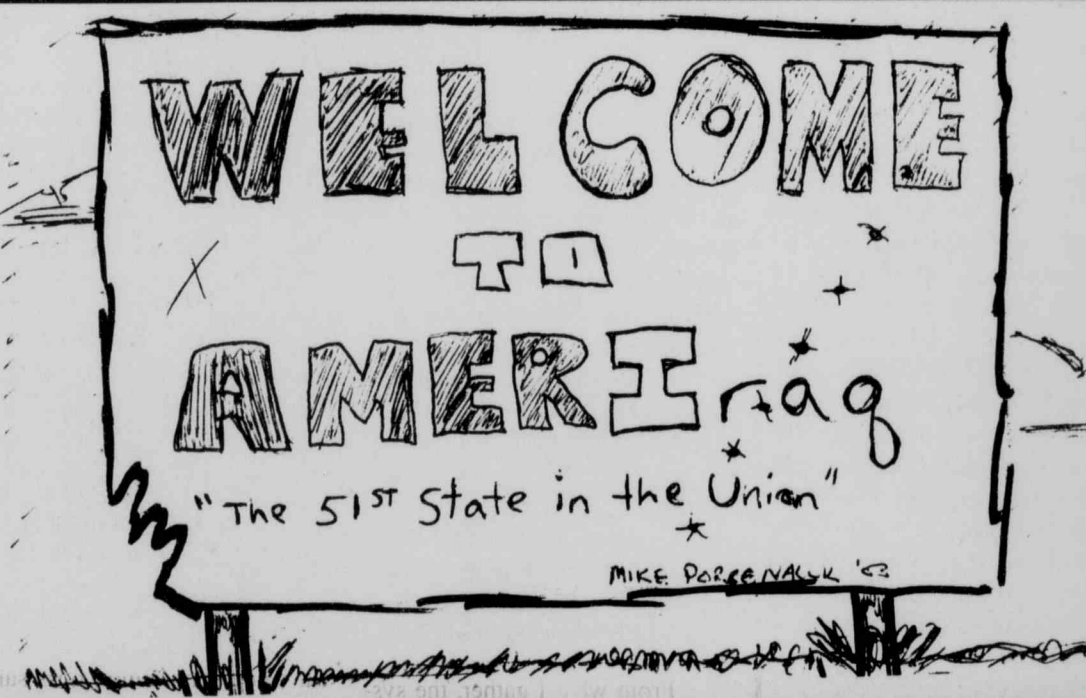 WELCOME
TO
AMERIraq
"The 51ST State in the Union"
MIKE '03